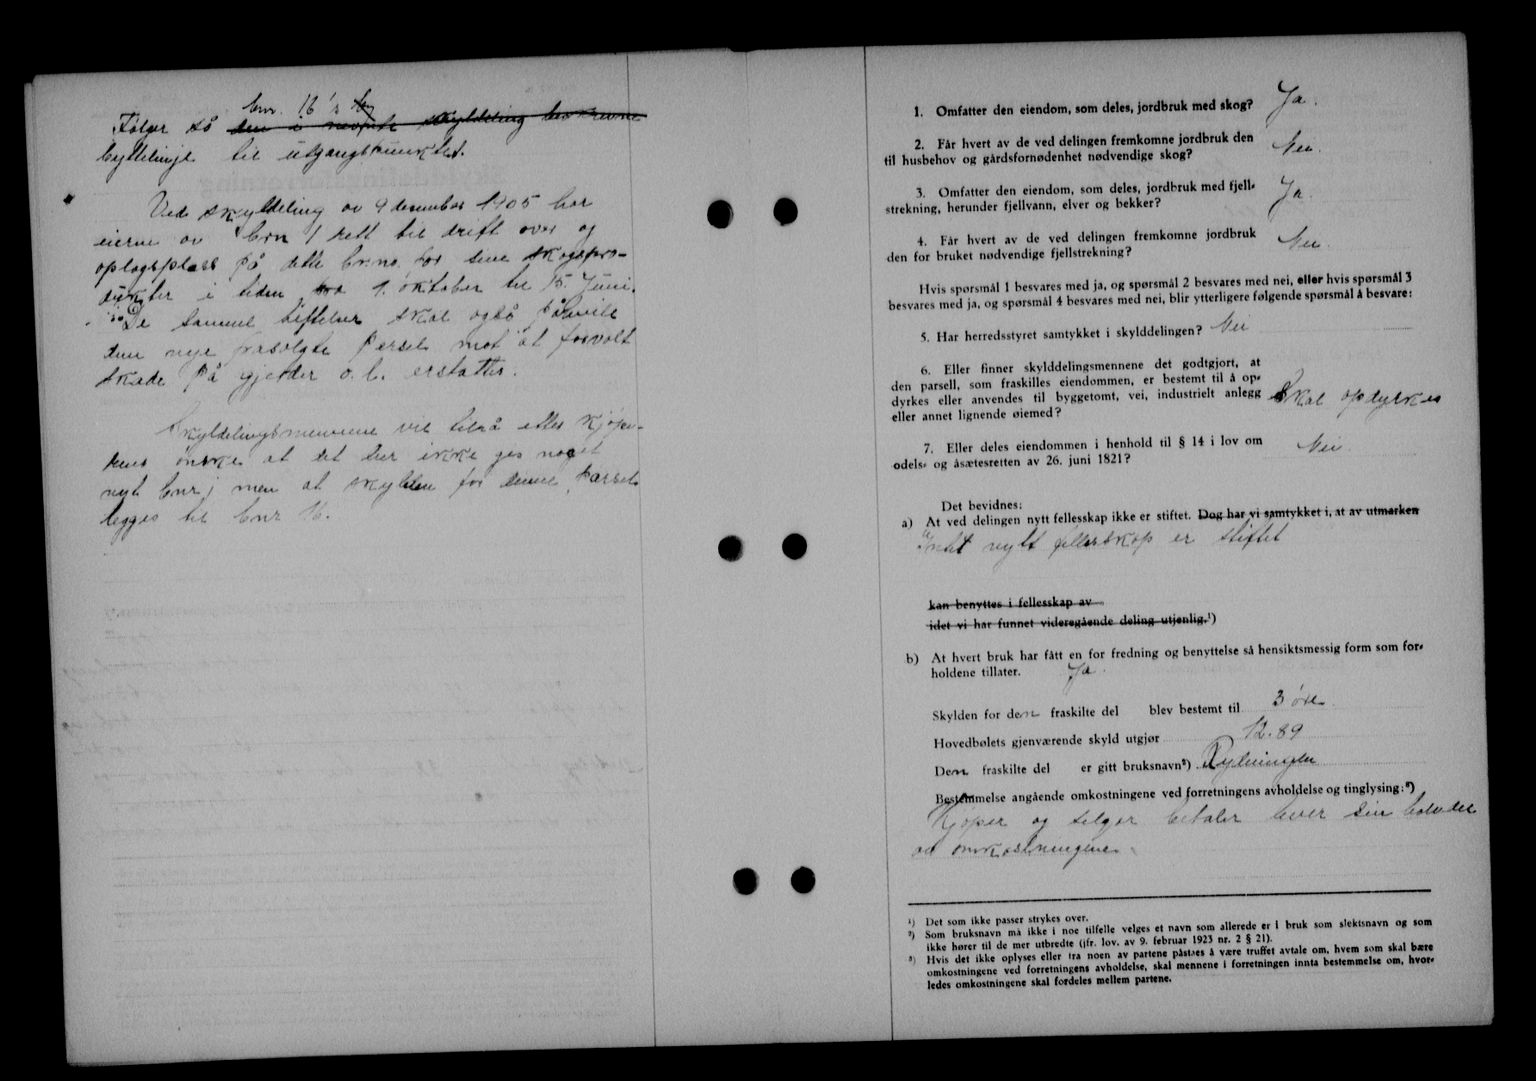 bnr. 16's
Følger så den i nevnte skylddeling beskrevne
byttelinje til utgangspunktet.
Ved skyldeling av 9 desember 1905 har
eierne av bnr 1 rett til drift over og
oplagsplass på dette br.no. for sine skogspro-
dukter i tiden fra 1. oktober til 15. Juni.
De samme heftelser skal også påhvile
den nye frasolgte parsel mot at forvolt
skade på gjerder o.l. erstattes.
Skyldelingsmennene vil tilrå etter kjøpe-
rens ønske at det her ikke gis noget
nyt bnr; men at skylden for denne parsel
legges til bnr 16.
1. Omfatter den eiendom, som deles, jordbruk med skog? Ja.
2. Får hvert av de ved delingen fremkomne jordbruk den
til husbehov og gårdsfornødenhet nødvendige skog? Nei.
3. Omfatter den eiendom, som deles, jordbruk med fjell-
strekning, herunder fjellvann, elver og bekker? Ja.
4. Får hvert av de ved delingen fremkomne jordbruk
den for bruket nødvendige fjellstrekning? Nei.
Hvis spørsmål 1 besvares med ja, og spørsmål 2 besvares med nei, eller hvis spørsmål 3
besvares med ja, og spørsmål 4 besvares med nei, blir ytterligere følgende spørsmål å besvare:
5. Har herredsstyret samtykket i skylddelingen? Nei
6. Eller finner skylddelingsmennene det godtgjort, at
den parsell, som fraskilles eiendommen, er bestemt til å op-
dyrkes eller anvendes til byggetomt, vei, industrielt anlegg
eller annet lignende øiemed? Skal opdyrkes
7. Eller deles eiendommen i henhold til § 14 i lov om
odels- og åsætesretten av 26. juni 1821? Nei.
Det bevidnes:
a) At ved delingen nytt fellesskap ikke er stiftet. Dog har vi samtykket i, at av utmarken
Intet nytt fellesskap er stiftet
kan benyttes i fellesskap av
idet vi har funnet videregående deling utjenlig.¹)
b) At hvert bruk har fått en for fredning og benyttelse så hensiktsmessig form som for-
holdene tillater. Ja.
Skylden for den fraskilte del blev bestemt til 3 øre.
Hovedbølets gjenværende skyld utgjør 12.89
Den fraskilte del er gitt bruksnavn²) Rydningen
Bestemmelse angående omkostningene ved forretningens avholdelse og tinglysing:³)
Kjøper og selger betaler hver sin halvdel
av omkostningene.
¹) Det som ikke passer strykes over.
²) Som bruksnavn må ikke i noe tilfelle velges et navn som allerede er i bruk som slektsnavn og som
ikke hører til de mer utbredte (jfr. lov. av 9. februar 1923 nr. 2 § 21).
³) Hvis det ikke oplyses eller fra noen av partene påstaes å være truffet avtale om, hvem som skal bære
omkostningene ved forretningens avholdelse, skal mennene i forretningen innta bestemmelse om, hvor-
ledes omkostningene skal fordeles mellem partene.